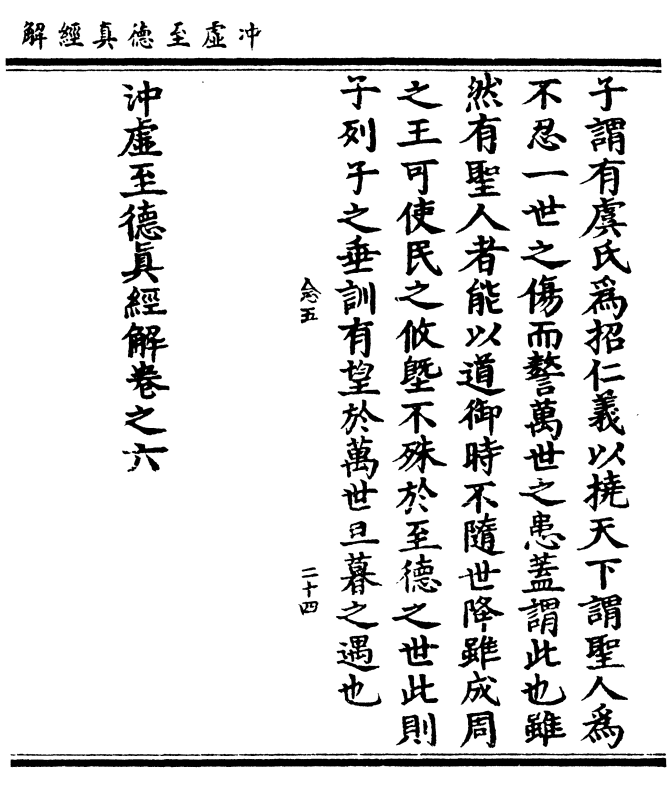 冲虛至德真經解
子謂有虞氏爲招仁義以撓天下謂聖人爲
不忍一世之傷而驁萬世之患蓋謂此也雖
然有聖人者能以道御時不隨世降雖成周
之王可使民之攸塈不殊於至德之世此則
子列子之垂訓有望於萬世旦暮之遇也
念五
二十四
沖虛至德眞經解卷之六